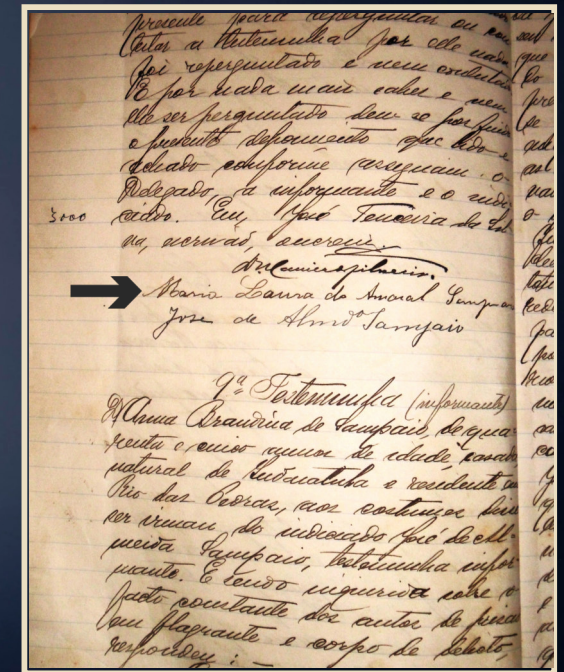 presente para reperguntar ou con
testar a testemunha por ele nada
foi reperguntado e nem contestado
E por nada mais saber e nem
lhe ser perguntado deu-se por findo
o presente depoimento que lido e
achado conforme assignam o
Delegado, a informante e o indi
3000 ciado. Eu, José Teixeira da Sil
va, escrivão, escrevi.
Maria Laura do Amaral Sampaio
Jose de Almdª Sampaio
9ª Testemunha (informante)
D. Anna Brandina de Sampaio, de qua
renta e cinco annos de idade, casada
natural de Indaiatuba e residente em
Rio das Pedras, aos costumes disse
ser irman do indiciado José de Al-
meida Sampaio, testemunha infor
mante. E sendo inquirida sobre o
facto constante dos autos de prisão
em flagrante e corpo de delicto,
respondeu: —